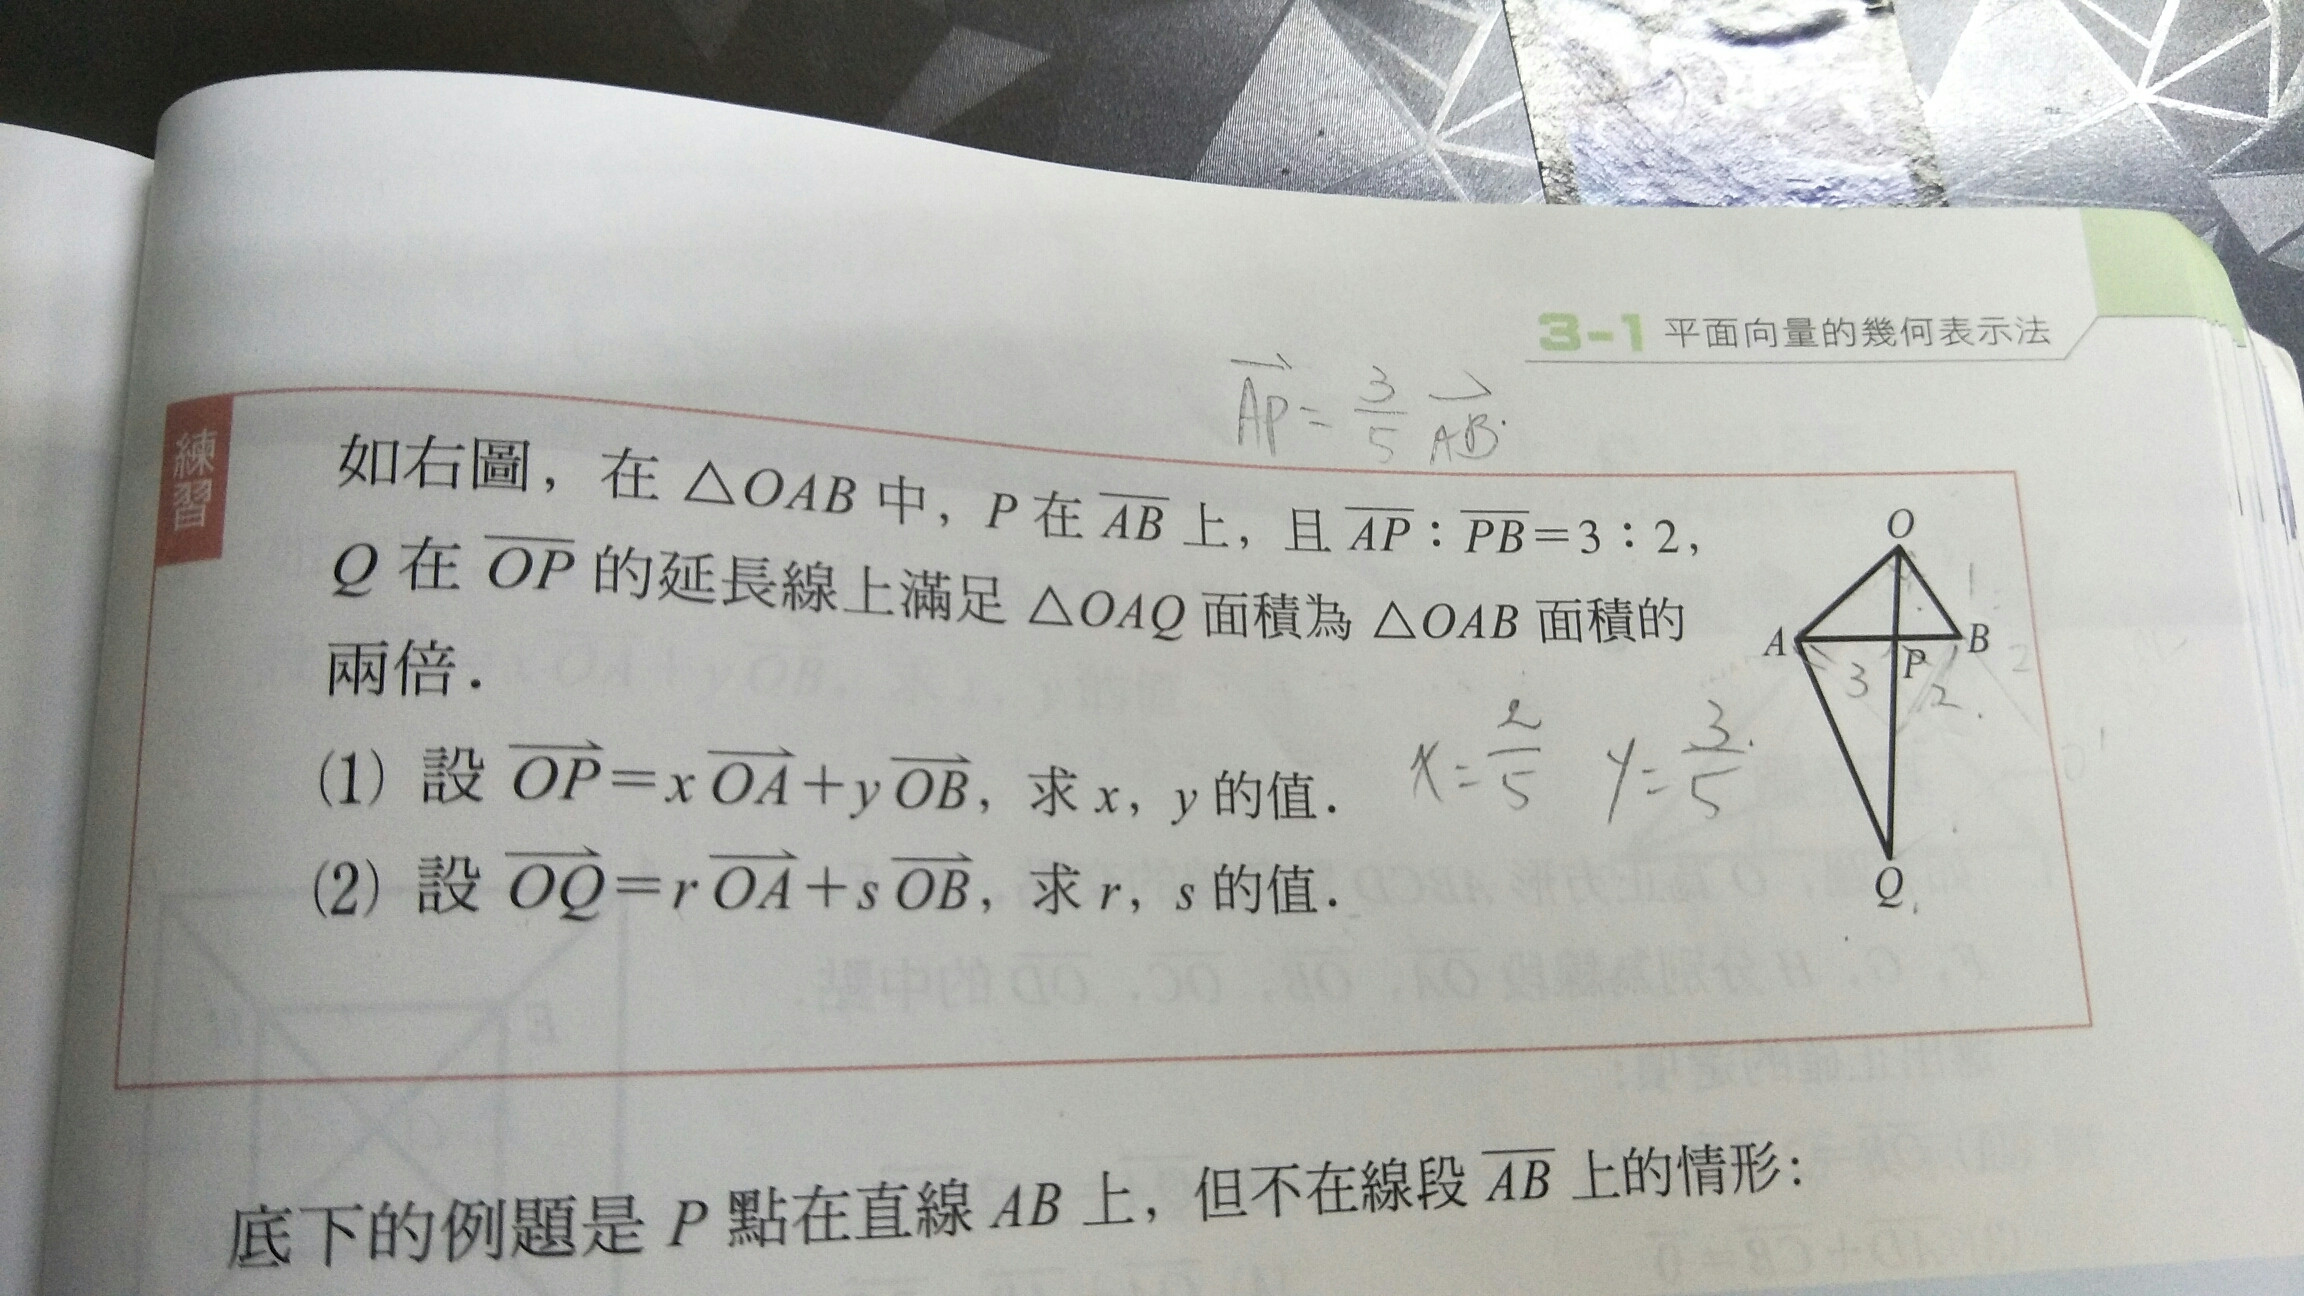 3-1 平面向量的幾何表示法
AP = 3/5 AB.
練習
如右圖，在 △OAB 中，P 在 AB 上，且 AP：PB=3：2，
Q 在 OP 的延長線上滿足 △OAQ 面積為 △OAB 面積的
兩倍．
(1) 設 OP=xOA+yOB，求 x，y 的值．
x=2/5 y=3/5.
(2) 設 OQ=rOA+sOB，求 r，s 的值．
O
A
B
P
Q
3
2
1
2
底下的例題是 P 點在直線 AB 上，但不在線段 AB 上的情形：